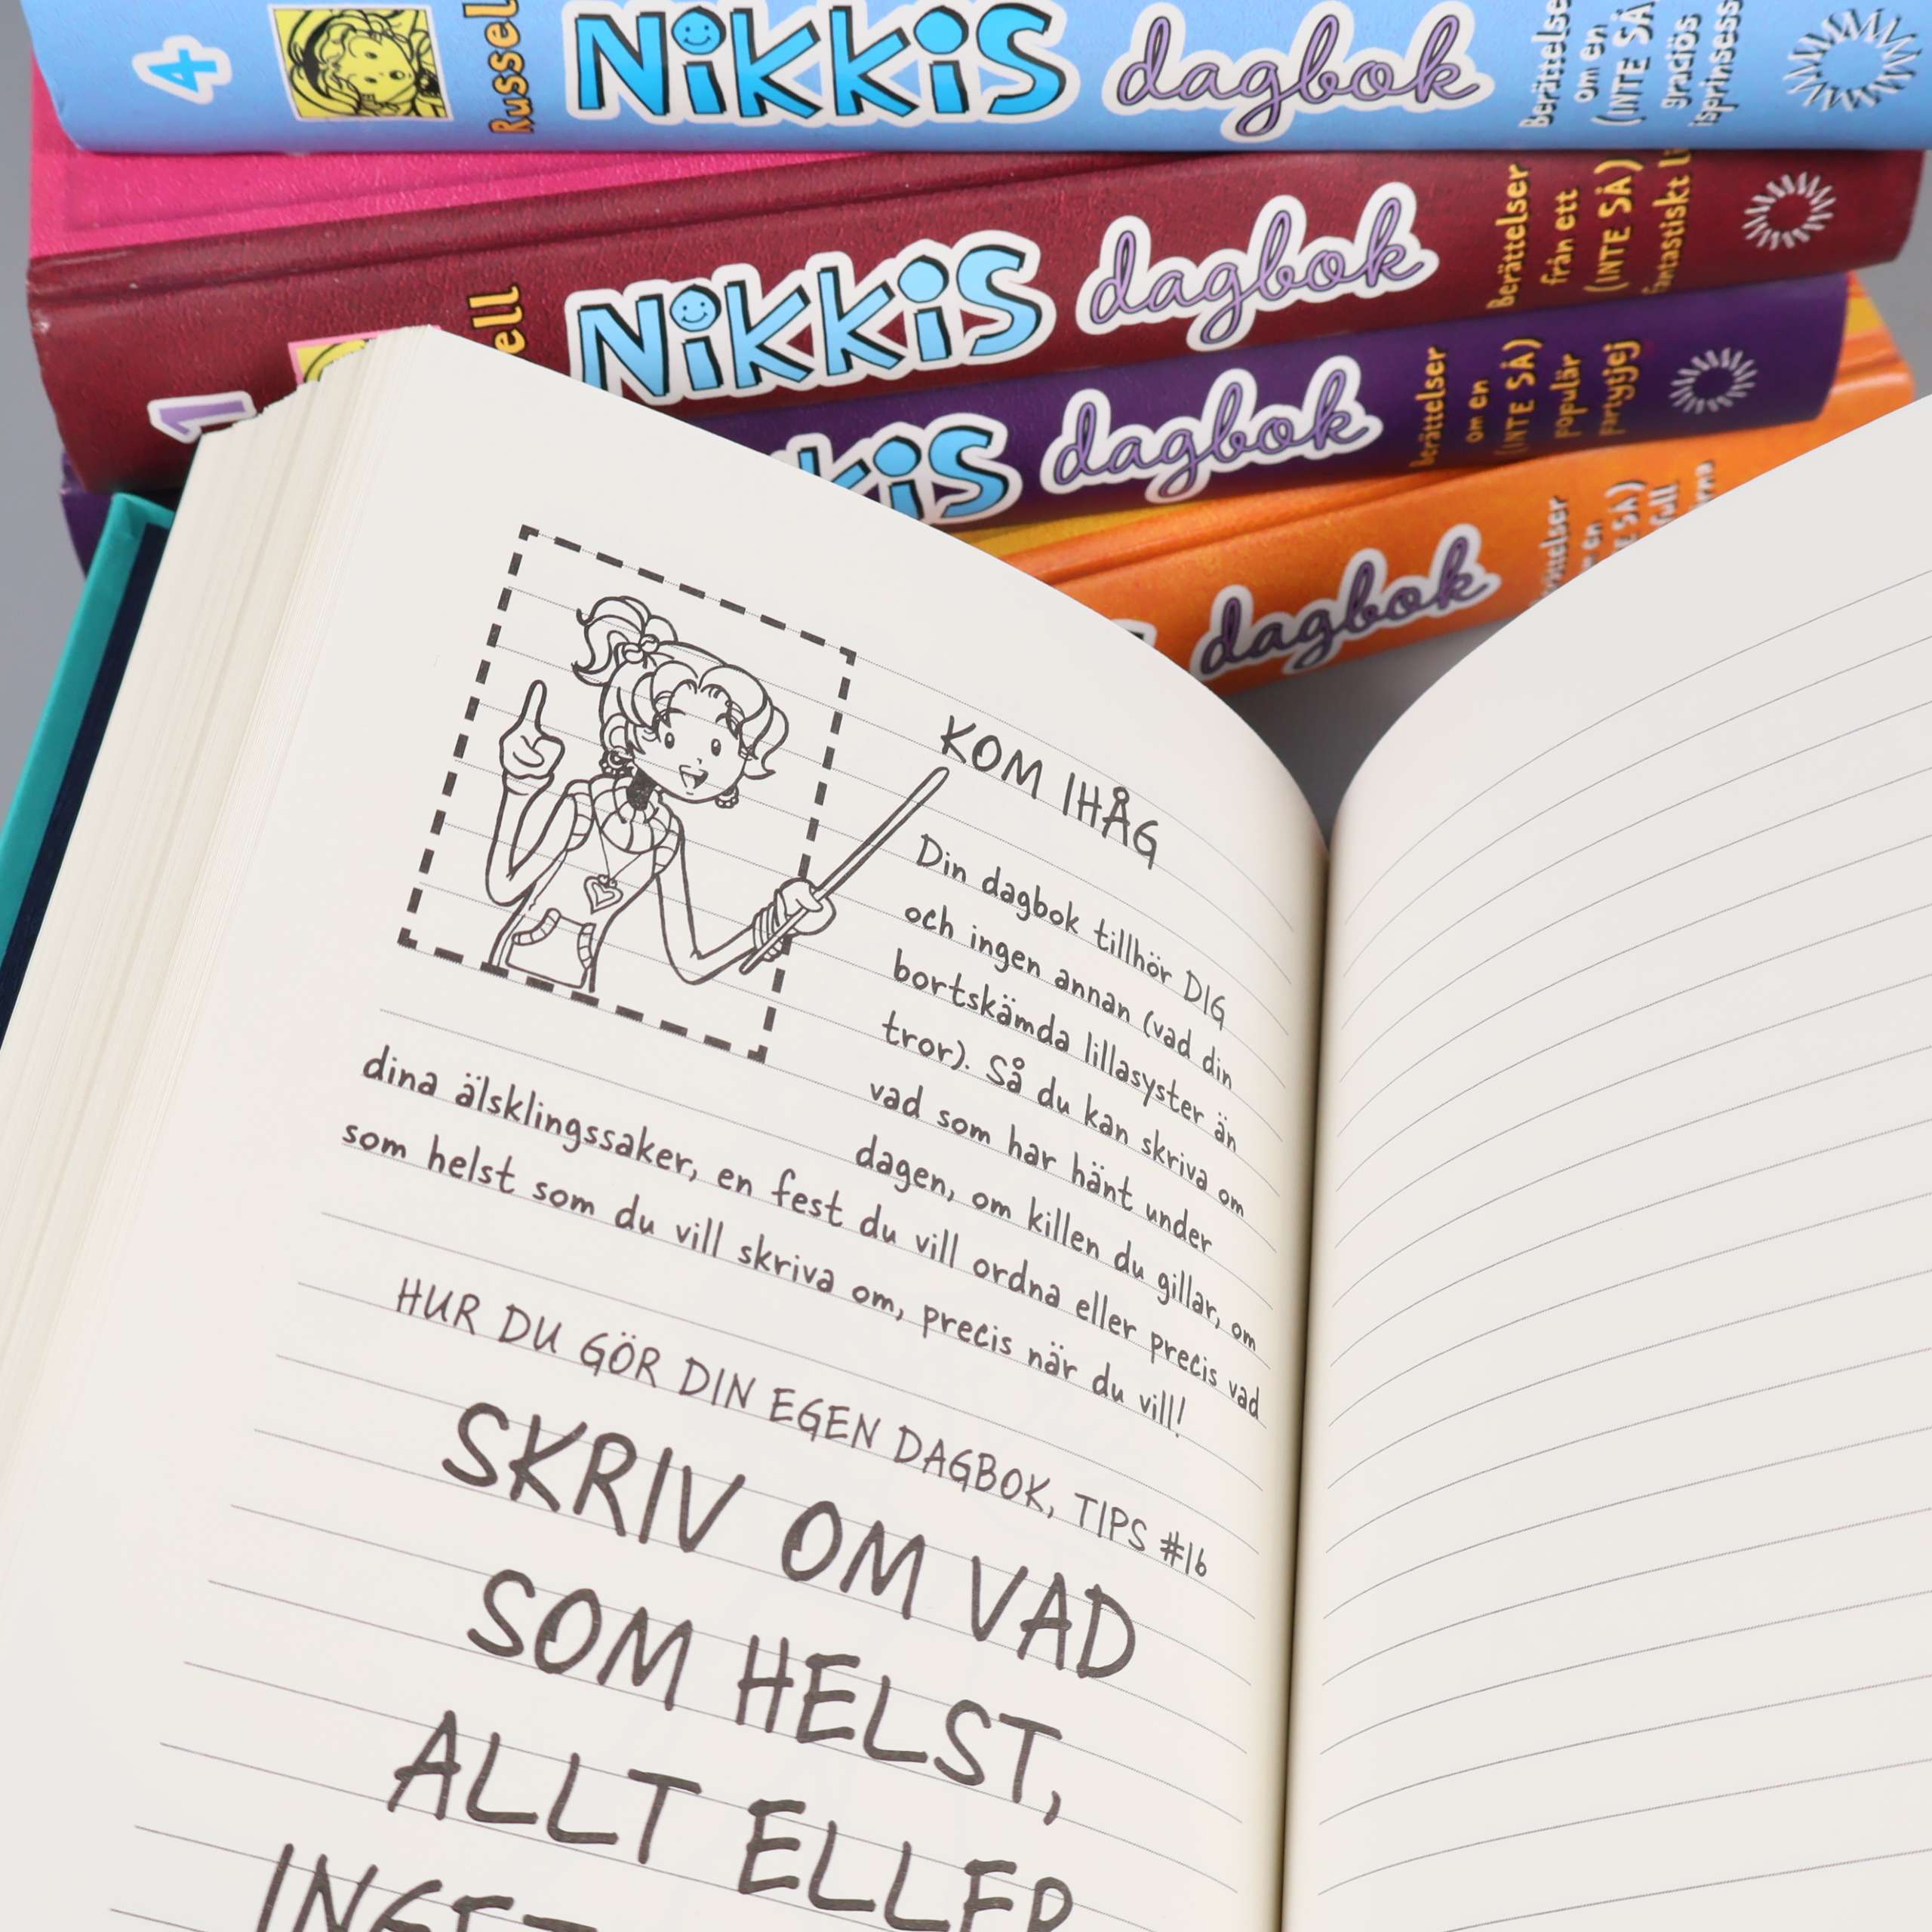 4
Russel
NiKKiS dagbok
Berättelse
om en
(INTE SÅ
graciös
isprinsess
1
ell
NiKKiS dagbok
Berättelser
från ett
(INTE SÅ)
fantastiskt li
KiS dagbok
Berättelser
om en
(INTE SÅ)
populär
partytjej
dagbok
en
full
KOM IHÅG
Din dagbok tillhör DIG
och ingen annan (vad din
bortskämda lillasyster än
tror). Så du kan skriva om
vad som har hänt under
dagen, om killen du gillar, om
dina älsklingssaker, en fest du vill ordna eller precis vad
som helst som du vill skriva om, precis när du vill!
HUR DU GÖR DIN EGEN DAGBOK, TIPS #16
SKRIV OM VAD
SOM HELST,
ALLT ELLER
INGET